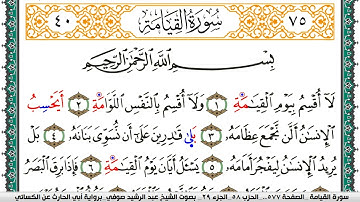 ٧٥ سُورَةُ الْقِيَامَةِ ٤٠
بِسْمِ اللَّهِ الرَّحْمَٰنِ الرَّحِيمِ
لَآ أُقْسِمُ بِيَوْمِ الْقِيَٰمَةِ ١ وَلَآ أُقْسِمُ بِالنَّفْسِ اللَّوَّامَةِ ٢ أَيَحْسِبُ
الْإِنسَٰنُ أَلَّن نَّجْمَعَ عِظَامَهُۥ ٣ بَلَىٰ قَٰدِرِينَ عَلَىٰٓ أَن نُّسَوِّيَ بَنَانَهُۥ ٤ بَلْ
يُرِيدُ الْإِنسَٰنُ لِيَفْجُرَ أَمَامَهُۥ ٥ يَسْـَٔلُ أَيَّانَ يَوْمُ الْقِيَٰمَةِ ٦ فَإِذَا بَرِقَ الْبَصَرُ
سورة القيامة . الصفحة ٥٧٧ . الحزب ٥٨ . الجزء ٢٩ . بصوت الشيخ عبد الرشيد صوفي . برواية أبي الحارث عن الكسائي